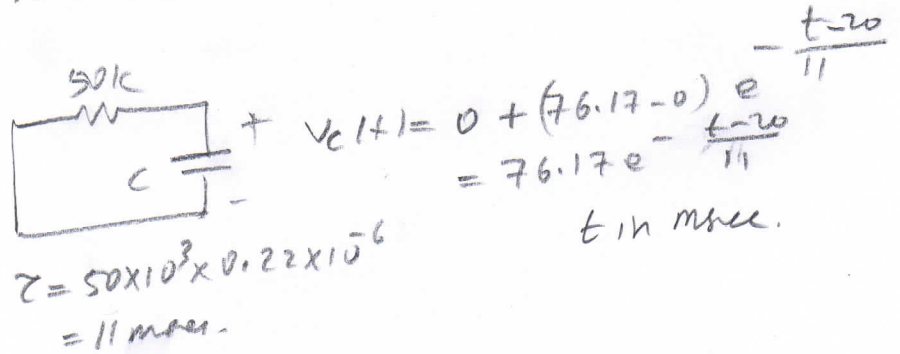 50K
C
+
-
Vc(t) = 0 + (76.17-0) e^-(t-20)/11
= 76.17 e^-(t-20)/11
t in msec.
τ = 50X10³X0.22X10⁻⁶
= 11 msec.